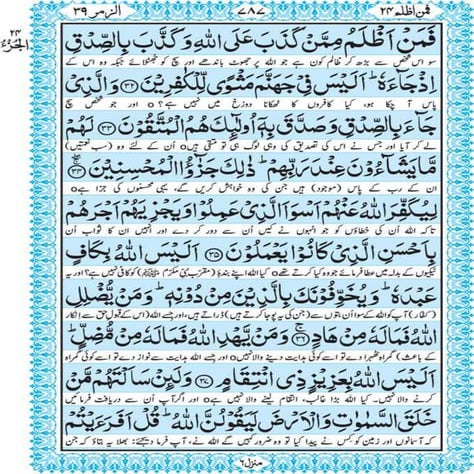 فمن اظلم ٢٤ ٧٨٧ الزمر ٣٩
الجزء ٢٤
فَمَنْ اَظْلَمُ مِمَّنْ كَذَبَ عَلَى اللّٰهِ وَكَذَّبَ بِالصِّدْقِ
سو اس شخص سے بڑھ کر ظالم کون ہے جو اللہ پر جھوٹ باندھے اور سچ کو جھٹلائے جبکہ وہ اس کے
اِذْ جَآءَهٗ ؕ اَلَيْسَ فِيْ جَهَنَّمَ مَثْوًى لِّلْكٰفِرِيْنَ ﴿۳۲﴾ وَالَّذِيْ
پاس آ چکا ہو، کیا کافروں کا ٹھکانا دوزخ میں نہیں ہے؟ o اور جو شخص سچ
جَآءَ بِالصِّدْقِ وَصَدَّقَ بِهٖۤ اُولٰٓئِكَ هُمُ الْمُتَّقُوْنَ ﴿۳۳﴾ لَهُمْ
لے کر آیا اور جس نے اس کی تصدیق کی وہی لوگ ہی تو متقی ہیں o اُن کے لئے وہ (سب نعمتیں)
مَّا يَشَآءُوْنَ عِنْدَ رَبِّهِمْ ؕ ذٰلِكَ جَزٰٓؤُا الْمُحْسِنِيْنَ ﴿۳۴﴾
ان کے رب کے پاس (موجود) ہیں جن کی وہ خواہش کریں گے، یہی محسنوں کی جزا ہے o
لِيُكَفِّرَ اللّٰهُ عَنْهُمْ اَسْوَاَ الَّذِيْ عَمِلُوْا وَيَجْزِيَهُمْ اَجْرَهُمْ
تاکہ اللہ اُن کی خطاؤں کو جو انہوں نے کیں اُن سے دور کر دے اور انہیں ان کا ثواب اُن
بِاَحْسَنِ الَّذِيْ كَانُوْا يَعْمَلُوْنَ ﴿۳۵﴾ اَلَيْسَ اللّٰهُ بِكَافٍ
نیکیوں کے بدلہ میں عطا فرمائے جو وہ کیا کرتے تھے o کیا اللہ اپنے بندۂ (مقرب نبی مکرّم ﷺ) کو کافی نہیں ہے؟ اور یہ
عَبْدَهٗ ؕ وَيُخَوِّفُوْنَكَ بِالَّذِيْنَ مِنْ دُوْنِهٖ ؕ وَمَنْ يُّضْلِلِ
(کفار) آپ کو اللہ کے سوا اُن بتوں سے (جن کی یہ پوجا کرتے ہیں) ڈراتے ہیں، اور جسے اللہ (اس کے قبولِ حق سے انکار
اللّٰهُ فَمَا لَهٗ مِنْ هَادٍ ﴿۳۶﴾ وَمَنْ يَّهْدِ اللّٰهُ فَمَا لَهٗ مِنْ مُّضِلٍّ ؕ
کے باعث) گمراہ ٹھہرا دے تو اسے کوئی ہدایت دینے والا نہیں o اور جسے اللہ ہدایت سے نواز دے تو اسے کوئی گمراہ
اَلَيْسَ اللّٰهُ بِعَزِيْزٍ ذِي انْتِقَامٍ ﴿۳۷﴾ وَلَئِنْ سَاَلْتَهُمْ مَّنْ
کرنے والا نہیں۔ کیا اللہ بڑا غالب، انتقام لینے والا نہیں ہے؟ o اور اگر آپ اُن سے دریافت فرمائیں
خَلَقَ السَّمٰوٰتِ وَالْاَرْضَ لَيَقُوْلُنَّ اللّٰهُ ؕ قُلْ اَفَرَءَيْتُمْ
کہ آسمانوں اور زمین کو کِس نے پیدا کیا تو وہ ضرور کہیں گے اللہ نے، آپ فرما دیجئے: بھلا یہ بتاؤ کہ جن
منزل ٦